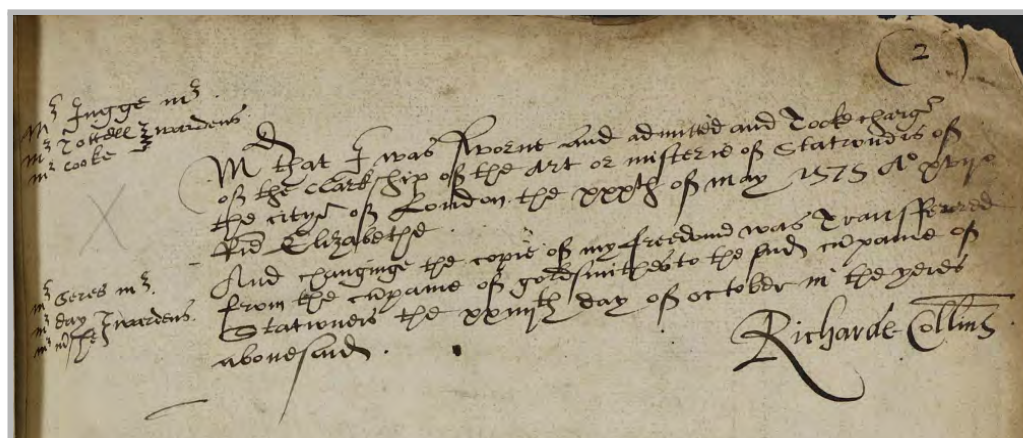 ( 2 )
mr Jugge mr
mr Tottell } wardens
mr Cooke
M that I was sworne and admitted and Tooke charge
of the clarkship of the Art or misterie of Stationers of
the citye of London the xxxth of may 1575 Ao xvijo
Rne Elizabethe
And changinge the copie of my freedome was Transfferred
from the cupame of goldsmithes to the said cupame of
Stationers the day of october in the yeres
abouesaid .
mr Seres mr.
mr day } wardens.
mr
Richarde Collins